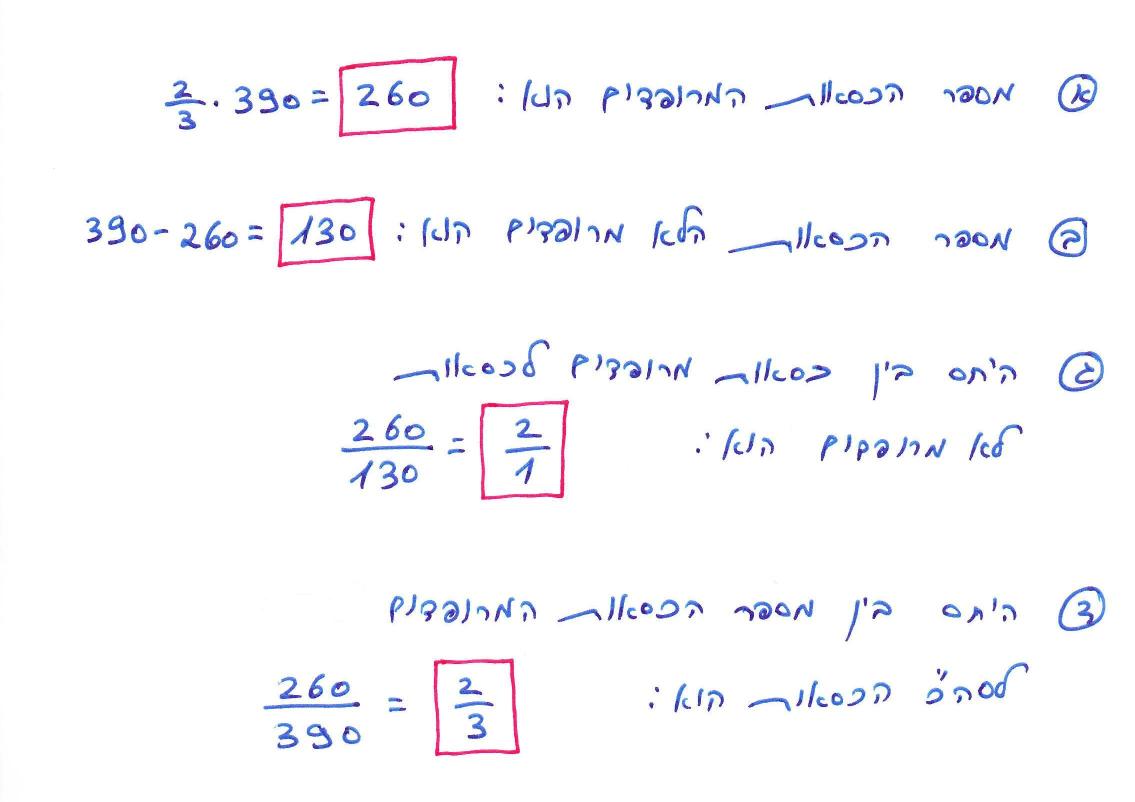 א מספר הכסאות המרופדים הוא: 2/3 · 390 = 260
ב מספר הכסאות הלא מרופדים הוא: 390 - 260 = 130
ג היחס בין כסאות מרופדים לכסאות
לא מרופדים הוא: 260/130 = 2/1
ד היחס בין מספר הכסאות המרופדים
לסה"כ הכסאות הוא: 260/390 = 2/3